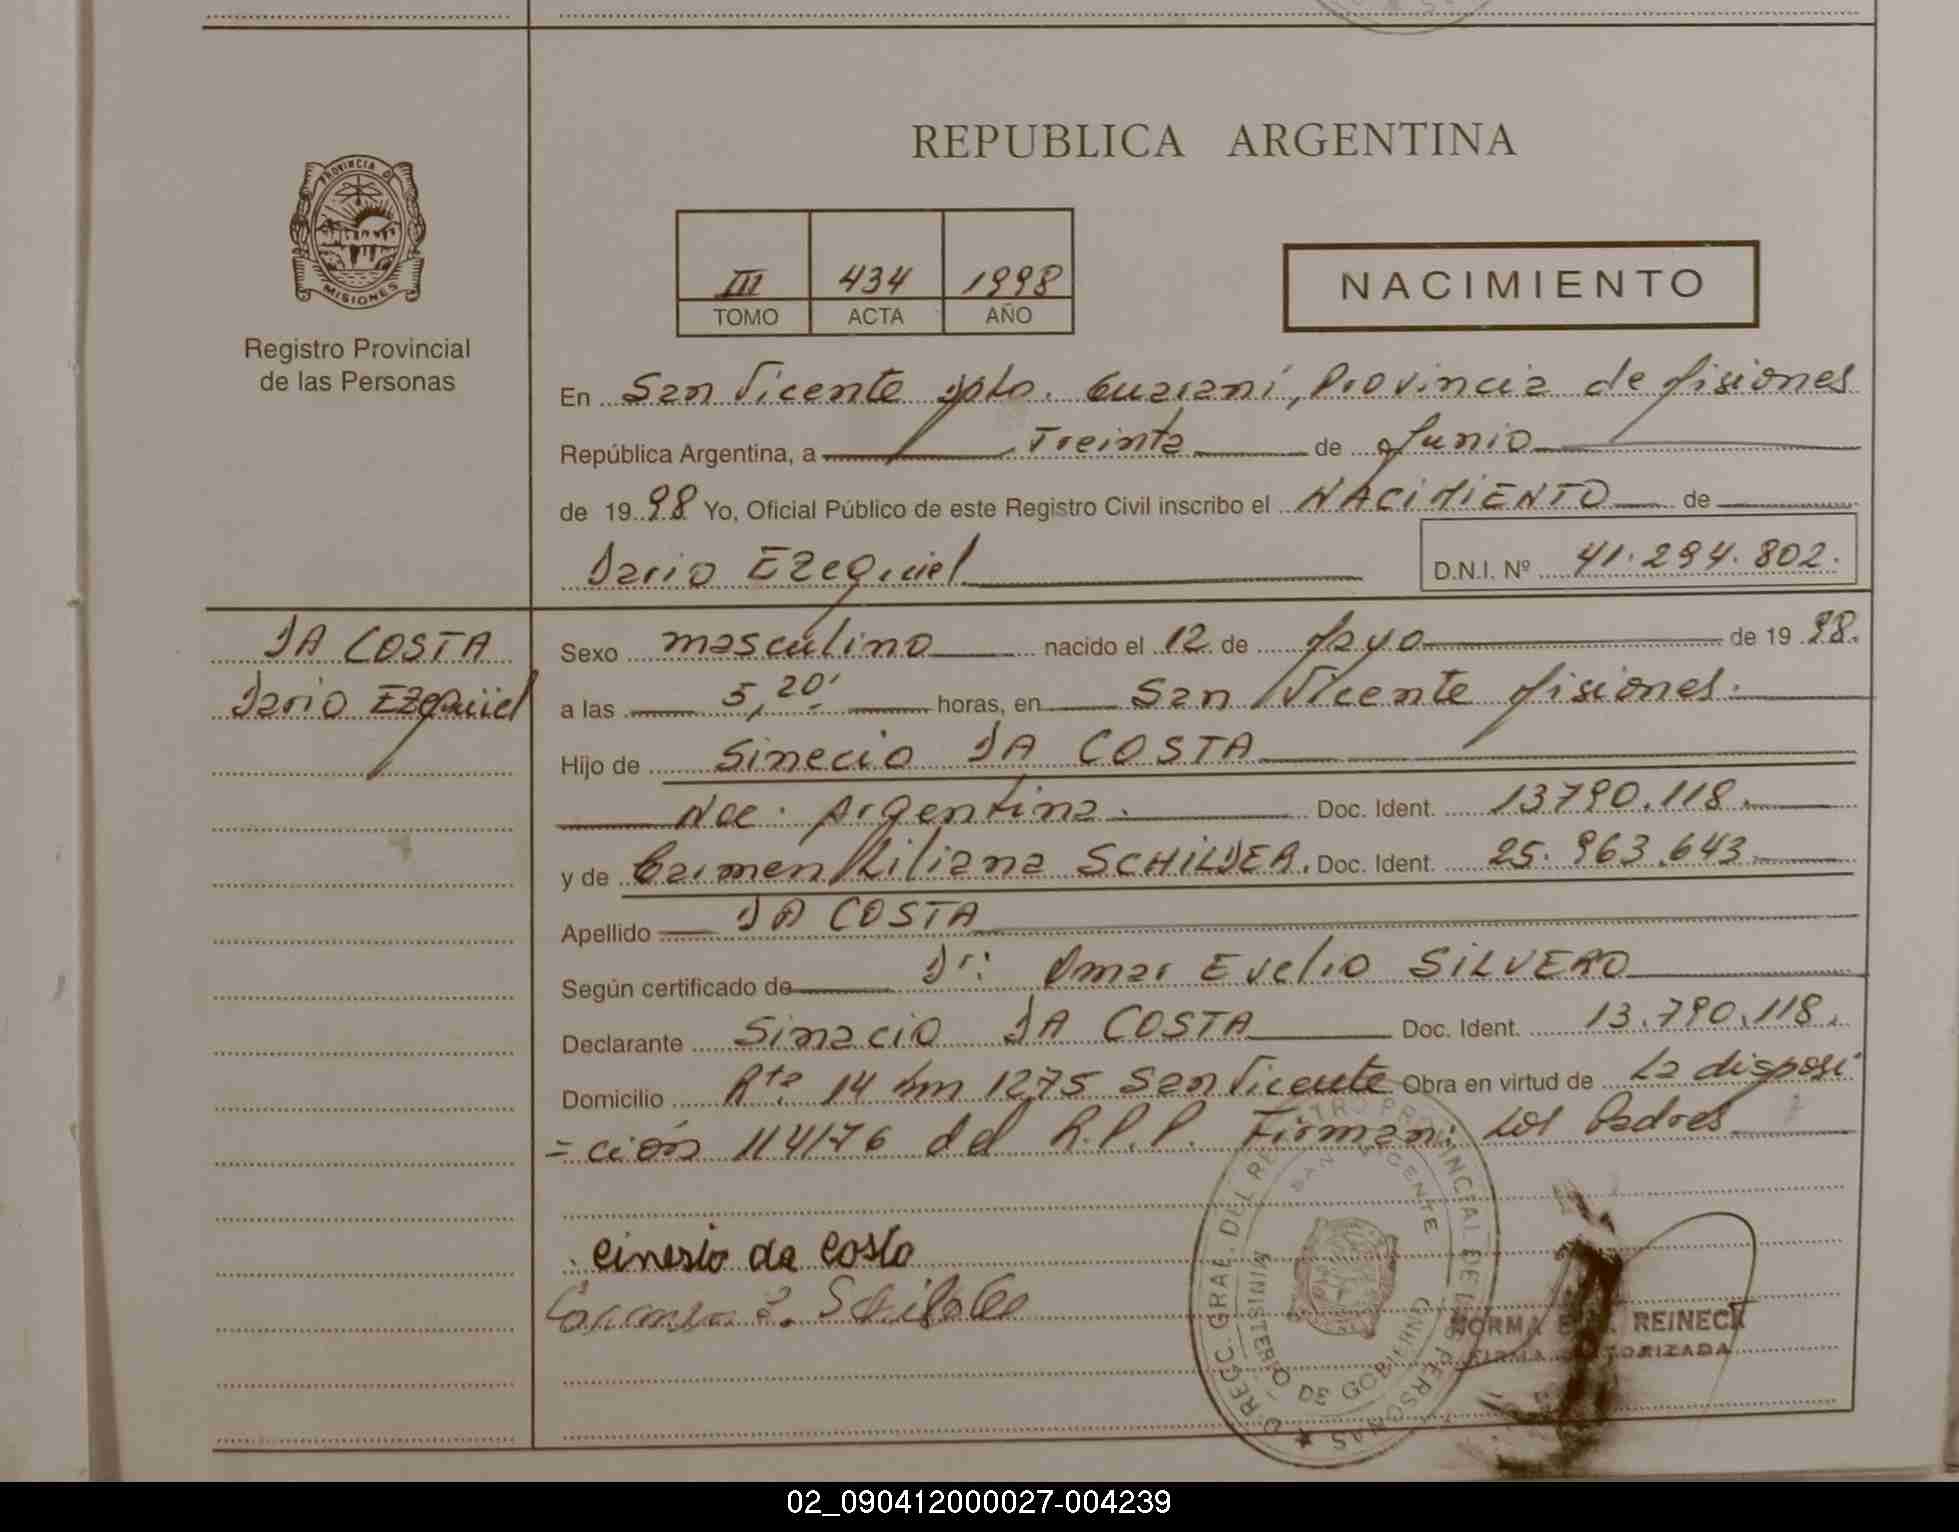 PROVINCIA D
MISIONES
Registro Provincial
de las Personas
REPUBLICA ARGENTINA
III 434 1998
TOMO ACTA AÑO
NACIMIENTO
En San Vicente Dpto. Guaraní, Provincia de Misiones
República Argentina, a Treinta de Junio
de 1998 Yo, Oficial Público de este Registro Civil inscribo el NACIMIENTO de
Dario Ezequiel D.N.I. Nº 41.294.802.
DA COSTA
Dario Ezequiel
Sexo masculino nacido el 12 de Mayo de 1998.
a las 5,20' horas, en San Vicente Misiones.
Hijo de Sinecio DA COSTA
Nac. Argentina. Doc. Ident. 13790.118.
y de Carmen Liliana SCHILDER. Doc. Ident. 25.963.643
Apellido DA COSTA
Según certificado de Dr: Omar Evelio SILVERO
Declarante Sinacio DA COSTA Doc. Ident. 13.790.118.
Domicilio Rta 14 km 1275 San Vicente Obra en virtud de La disposi
=ción 114/76 del R.P.P. Firman: Los Padres
Cinesio da Costa
DIRECC. GRAL. DEL REGISTRO PROVINCIAL DE LAS PERSONAS
SAN VICENTE
MINISTERIO DE GOBIERNO
NORMA REINECK
FIRMA AUTORIZADA
02_090412000027-004239